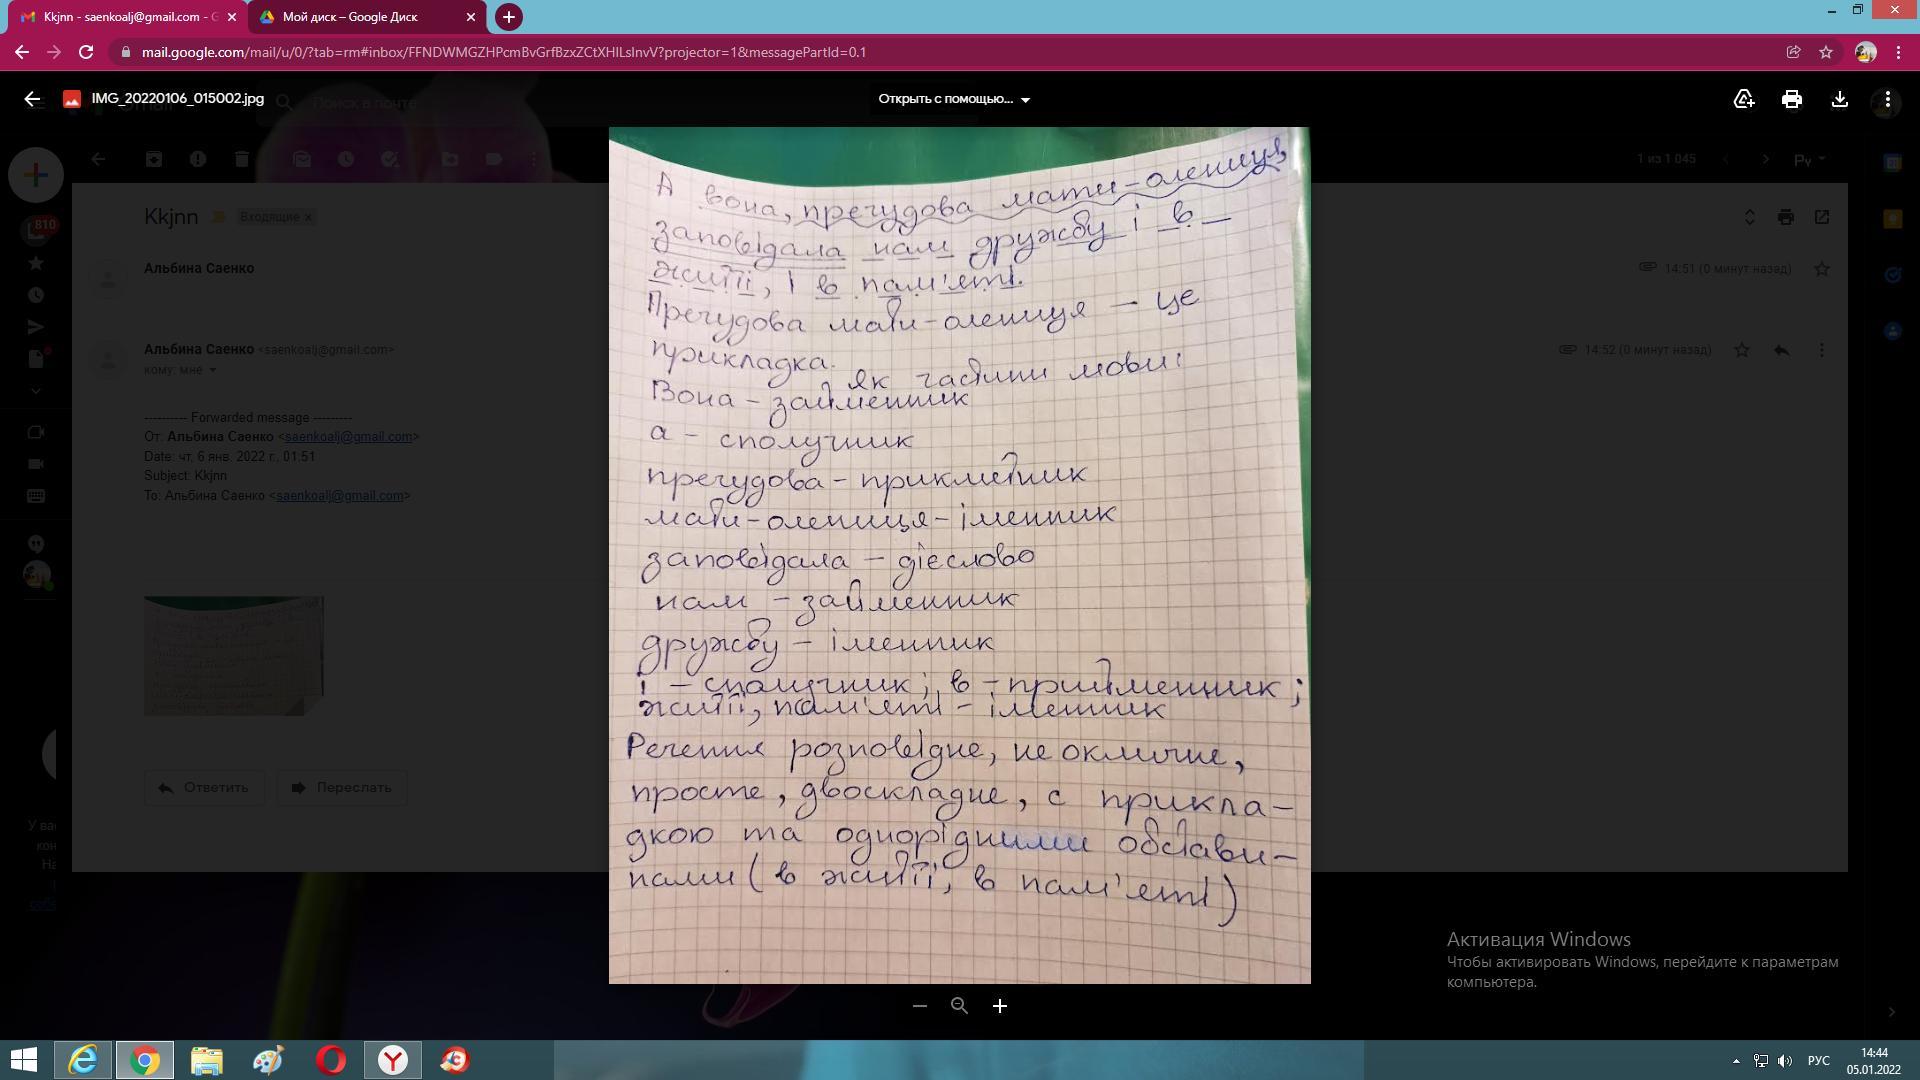 Kkjnn - saenkoalj@gmail.com - G
Мой диск – Google Диск
mail.google.com/mail/u/0/?tab=rm#inbox/FFNDWMGZHPcmBvGrfBzxZCtXHILsInvV?projector=1&messagePartId=0.1
IMG_20220106_015002.jpg
Поиск в почте
Открыть с помощью...
1 из 1 045
Ру
810
Kkjnn
Входящие ×
Альбина Саенко
14:51 (0 минут назад)
Альбина Саенко <saenkoalj@gmail.com>
14:52 (0 минут назад)
кому: мне
---------- Forwarded message ---------
От: Альбина Саенко <saenkoalj@gmail.com>
Date: чт, 6 янв. 2022 г., 01:51
Subject: Kkjnn
To: Альбина Саенко <saenkoalj@gmail.com>
Ответить
Переслать
А вона, пречудова мати-олениця,
заповідала нам дружбу і в
житті, і в пам'яті.
Пречудова мати-олениця – це
прикладка.
Як частини мови:
Вона – займенник
а – сполучник
пречудова – прикметник
мати-олениця – іменник
заповідала – дієслово
нам – займенник
дружбу – іменник
і – сполучник; в – прийменник;
житті, пам'яті – іменник
Речення розповідне, не окличне,
просте, двоскладне, с прикла-
дкою та однорідними обстави-
нами (в житті, в пам'яті)
Активация Windows
Чтобы активировать Windows, перейдите к параметрам
компьютера.
РУС
14:44
05.01.2022